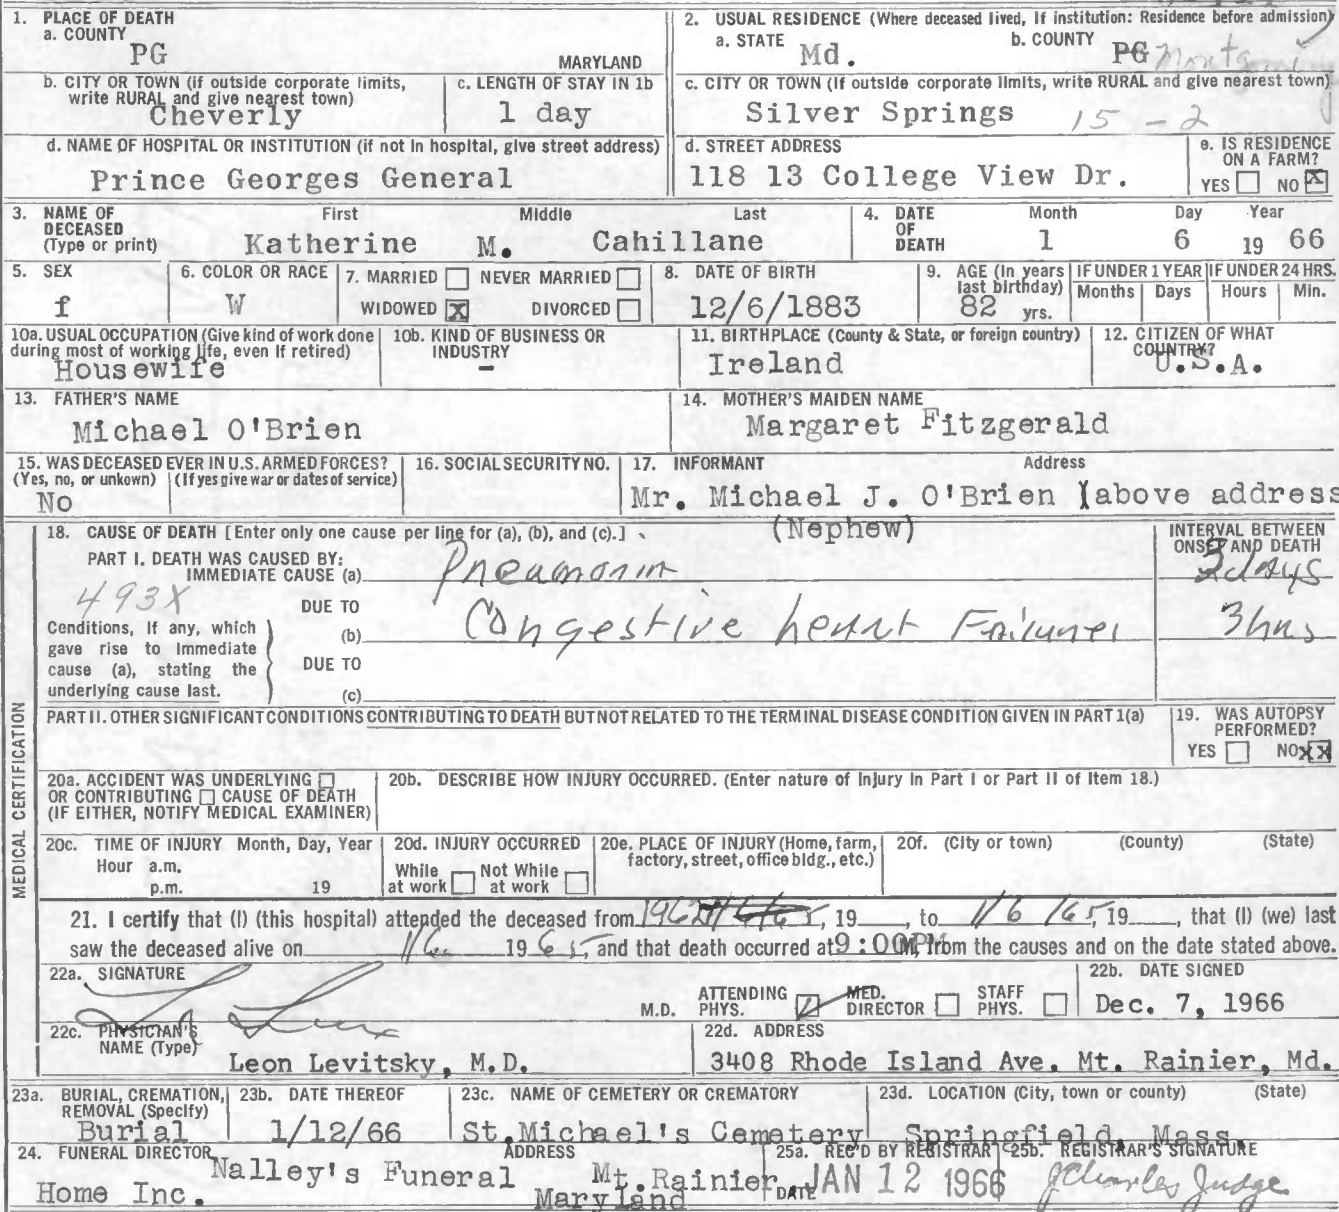 1. PLACE OF DEATH
a. COUNTY
PG
MARYLAND
2. USUAL RESIDENCE (Where deceased lived, If institution: Residence before admission)
a. STATE Md. b. COUNTY PG Montgomery
b. CITY OR TOWN (if outside corporate limits, write RURAL and give nearest town)
Cheverly
c. LENGTH OF STAY IN 1b
1 day
c. CITY OR TOWN (If outside corporate limits, write RURAL and give nearest town)
Silver Springs 15 - 2
d. NAME OF HOSPITAL OR INSTITUTION (if not in hospital, give street address)
Prince Georges General
d. STREET ADDRESS
118 13 College View Dr.
e. IS RESIDENCE ON A FARM?
YES NO X
3. NAME OF DECEASED (Type or print)
First Middle Last
Katherine M. Cahillane
4. DATE OF DEATH
Month Day Year
1 6 19 66
5. SEX
f
6. COLOR OR RACE
W
7. MARRIED NEVER MARRIED
WIDOWED X DIVORCED
8. DATE OF BIRTH
12/6/1883
9. AGE (In years last birthday)
82 yrs.
IF UNDER 1 YEAR
Months Days
IF UNDER 24 HRS.
Hours Min.
10a. USUAL OCCUPATION (Give kind of work done during most of working life, even if retired)
Housewife
10b. KIND OF BUSINESS OR INDUSTRY
-
11. BIRTHPLACE (County & State, or foreign country)
Ireland
12. CITIZEN OF WHAT COUNTRY?
U.S.A.
13. FATHER'S NAME
Michael O'Brien
14. MOTHER'S MAIDEN NAME
Margaret Fitzgerald
15. WAS DECEASED EVER IN U.S. ARMED FORCES?
(Yes, no, or unkown) (If yes give war or dates of service)
No
16. SOCIAL SECURITY NO.
17. INFORMANT Address
Mr. Michael J. O'Brien (above address
(Nephew)
18. CAUSE OF DEATH [Enter only one cause per line for (a), (b), and (c).]
INTERVAL BETWEEN ONSET AND DEATH
PART I. DEATH WAS CAUSED BY:
IMMEDIATE CAUSE (a) Pneumonia days
493X
DUE TO
(b) Congestive heart Failure 3hrs
Conditions, If any, which gave rise to Immediate cause (a), stating the underlying cause last.
DUE TO
(c)
MEDICAL CERTIFICATION
PART II. OTHER SIGNIFICANT CONDITIONS CONTRIBUTING TO DEATH BUT NOT RELATED TO THE TERMINAL DISEASE CONDITION GIVEN IN PART 1(a)
19. WAS AUTOPSY PERFORMED?
YES NO XX
20a. ACCIDENT WAS UNDERLYING
OR CONTRIBUTING CAUSE OF DEATH
(IF EITHER, NOTIFY MEDICAL EXAMINER)
20b. DESCRIBE HOW INJURY OCCURRED. (Enter nature of Injury In Part I or Part II of Item 18.)
20c. TIME OF INJURY Month, Day, Year
Hour a.m.
p.m. 19
20d. INJURY OCCURRED
While at work Not While at work
20e. PLACE OF INJURY (Home, farm, factory, street, office bldg., etc.)
20f. (City or town) (County) (State)
21. I certify that (I) (this hospital) attended the deceased from 1962, 19, to 1/6/65, 19, that (I) (we) last
saw the deceased alive on 1/6 1965, and that death occurred at 9:00PM, from the causes and on the date stated above.
22a. SIGNATURE
M.D. ATTENDING PHYS. MED. DIRECTOR STAFF PHYS.
22b. DATE SIGNED
Dec. 7, 1966
22c. PHYSICIAN'S NAME (Type)
Leon Levitsky, M.D.
22d. ADDRESS
3408 Rhode Island Ave. Mt. Rainier, Md.
23a. BURIAL, CREMATION, REMOVAL (Specify)
Burial
23b. DATE THEREOF
1/12/66
23c. NAME OF CEMETERY OR CREMATORY
St.Michael's Cemetery
23d. LOCATION (City, town or county) (State)
Springfield, Mass.
24. FUNERAL DIRECTOR ADDRESS
Nalley's Funeral Home Inc. Mt.Rainier, Maryland
25a. REC'D BY REGISTRAR
DATE JAN 12 1966
25b. REGISTRAR'S SIGNATURE
J Charles Judge